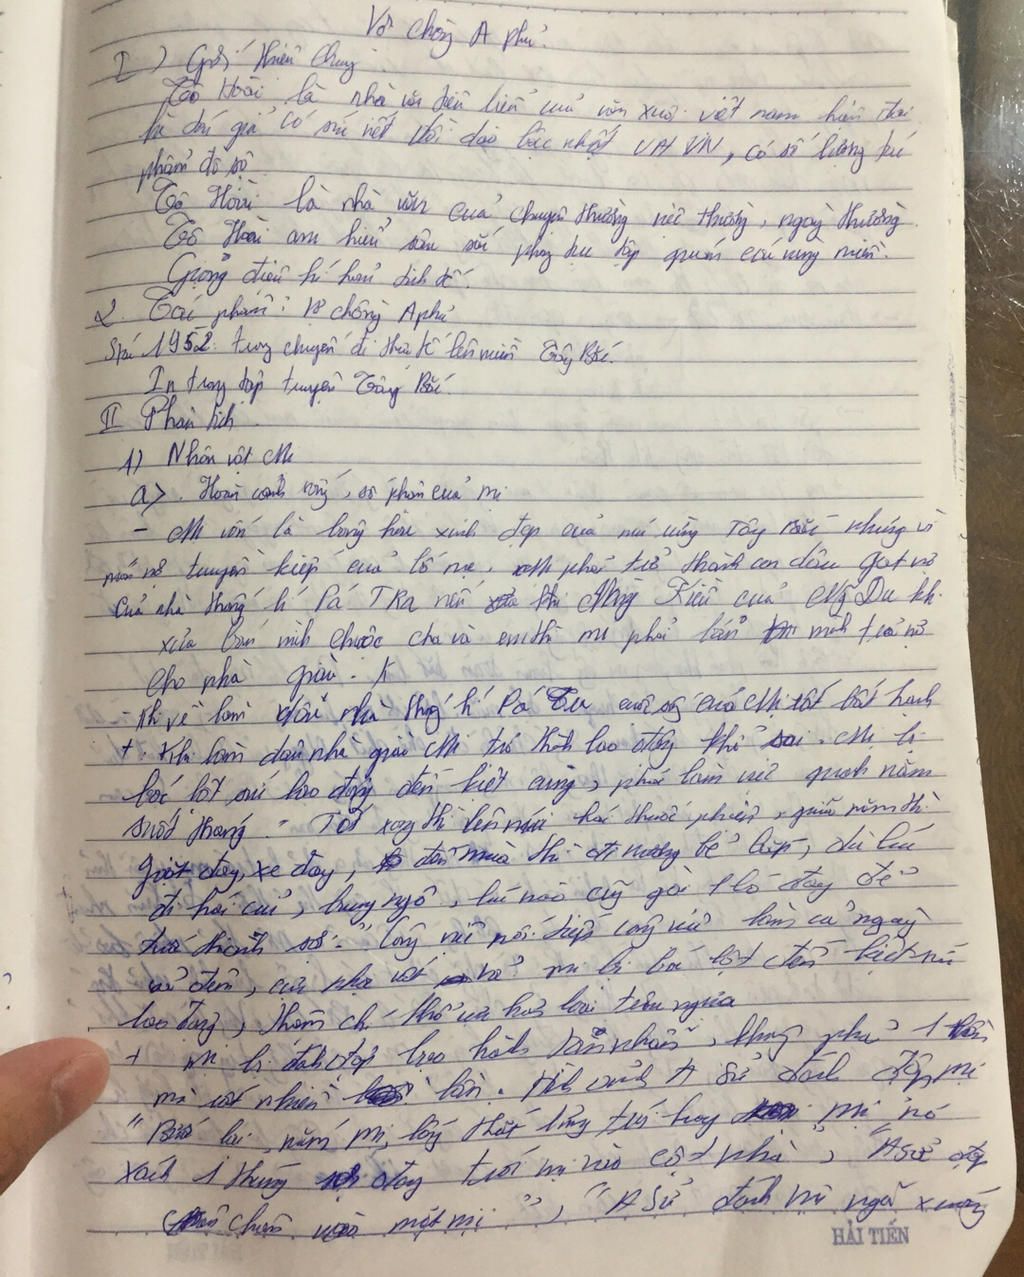 Vợ chồng A phủ.
I) Giới thiệu chung
Tô Hoài là nhà văn tiêu biểu của văn xuôi việt nam hiện đại
là tác giả có sức viết dồi dào bậc nhất VH VN, có số lượng tác
phẩm đồ sộ.
Tô Hoài là nhà văn của chuyện thường, ngày thường.
Tô Hoài am hiểu sâu sắc phong tục tập quán của vùng miền.
Giọng điệu hí
2. Tác phẩm: Vợ chồng A phủ
1952. trong chuyến đi thực tế lên miền Tây Bắc.
In trong tập truyện Tây Bắc.
II Phân tích
1) Nhân vật Mị
a). Hoàn cảnh sống, số phận của mị
- Mị vốn là bông hoa xinh đẹp của núi rừng Tây Bắc nhưng vì
món nợ truyền kiếp của bố mẹ, Mị phải trở thành con dâu gạt nợ
của nhà thống lí Pá Tra nên Kiều của Ng Du kh.
xưa bán mình chuộc cha và em thì mị phải bán mình trả nợ
cho nhà giàu.
- Khi về làm dâu nhà thống lí Pá Tra cuộc sống của Mị rất bất hạnh
+. Khi làm dâu nhà giàu Mị trở thành lao động khổ sai. Mị bị
bóc lột sức lao động đến kiệt cùng, phải làm việc quanh năm
suốt tháng. "Tết xong thì lên núi hái thuốc phiện, giữa năm thì
giặt đay, xe đay, đến mùa thì đi nương bẻ bắp, dù lúc
đi hái củi, bung ngô, lúc nào cũng gài 1 bó đay để
tước thành sợi." Công việc nối tiếp công việc làm cả ngày
cả đêm, mị bị bóc lột đến kiệt sức
lao động, thậm chí khổ còn hơn loài trâu ngựa
+ Mị bị đánh đập bạo hành tàn nhẫn, không phải 1 lần
mà rất nhiều lần. A Sử đánh đập mị
"Bước lại, nắm Mị, lấy thắt lưng trói hay Mị nó
xách 1 thúng sợi đay trói mị vào cột nhà", "A Sử đạp
chân vào mặt mị", "A Sử đánh mị ngã xuống
HẢI TIẾN